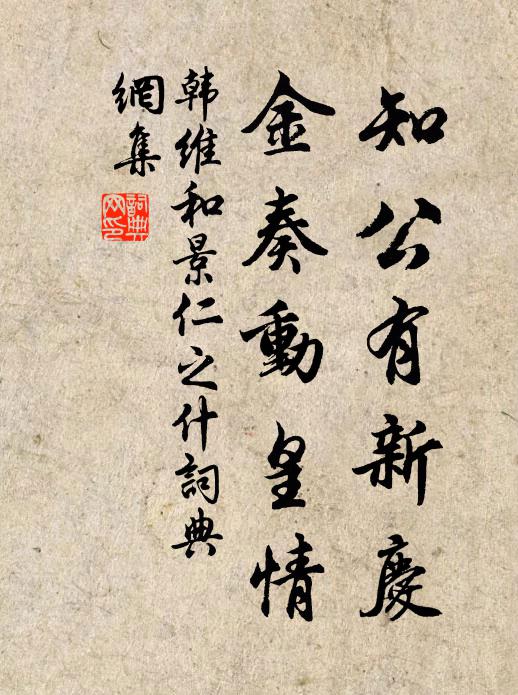 知公有新慶
金奏動皇情
韩維和景仁之什詞典
網集
詞典
网印